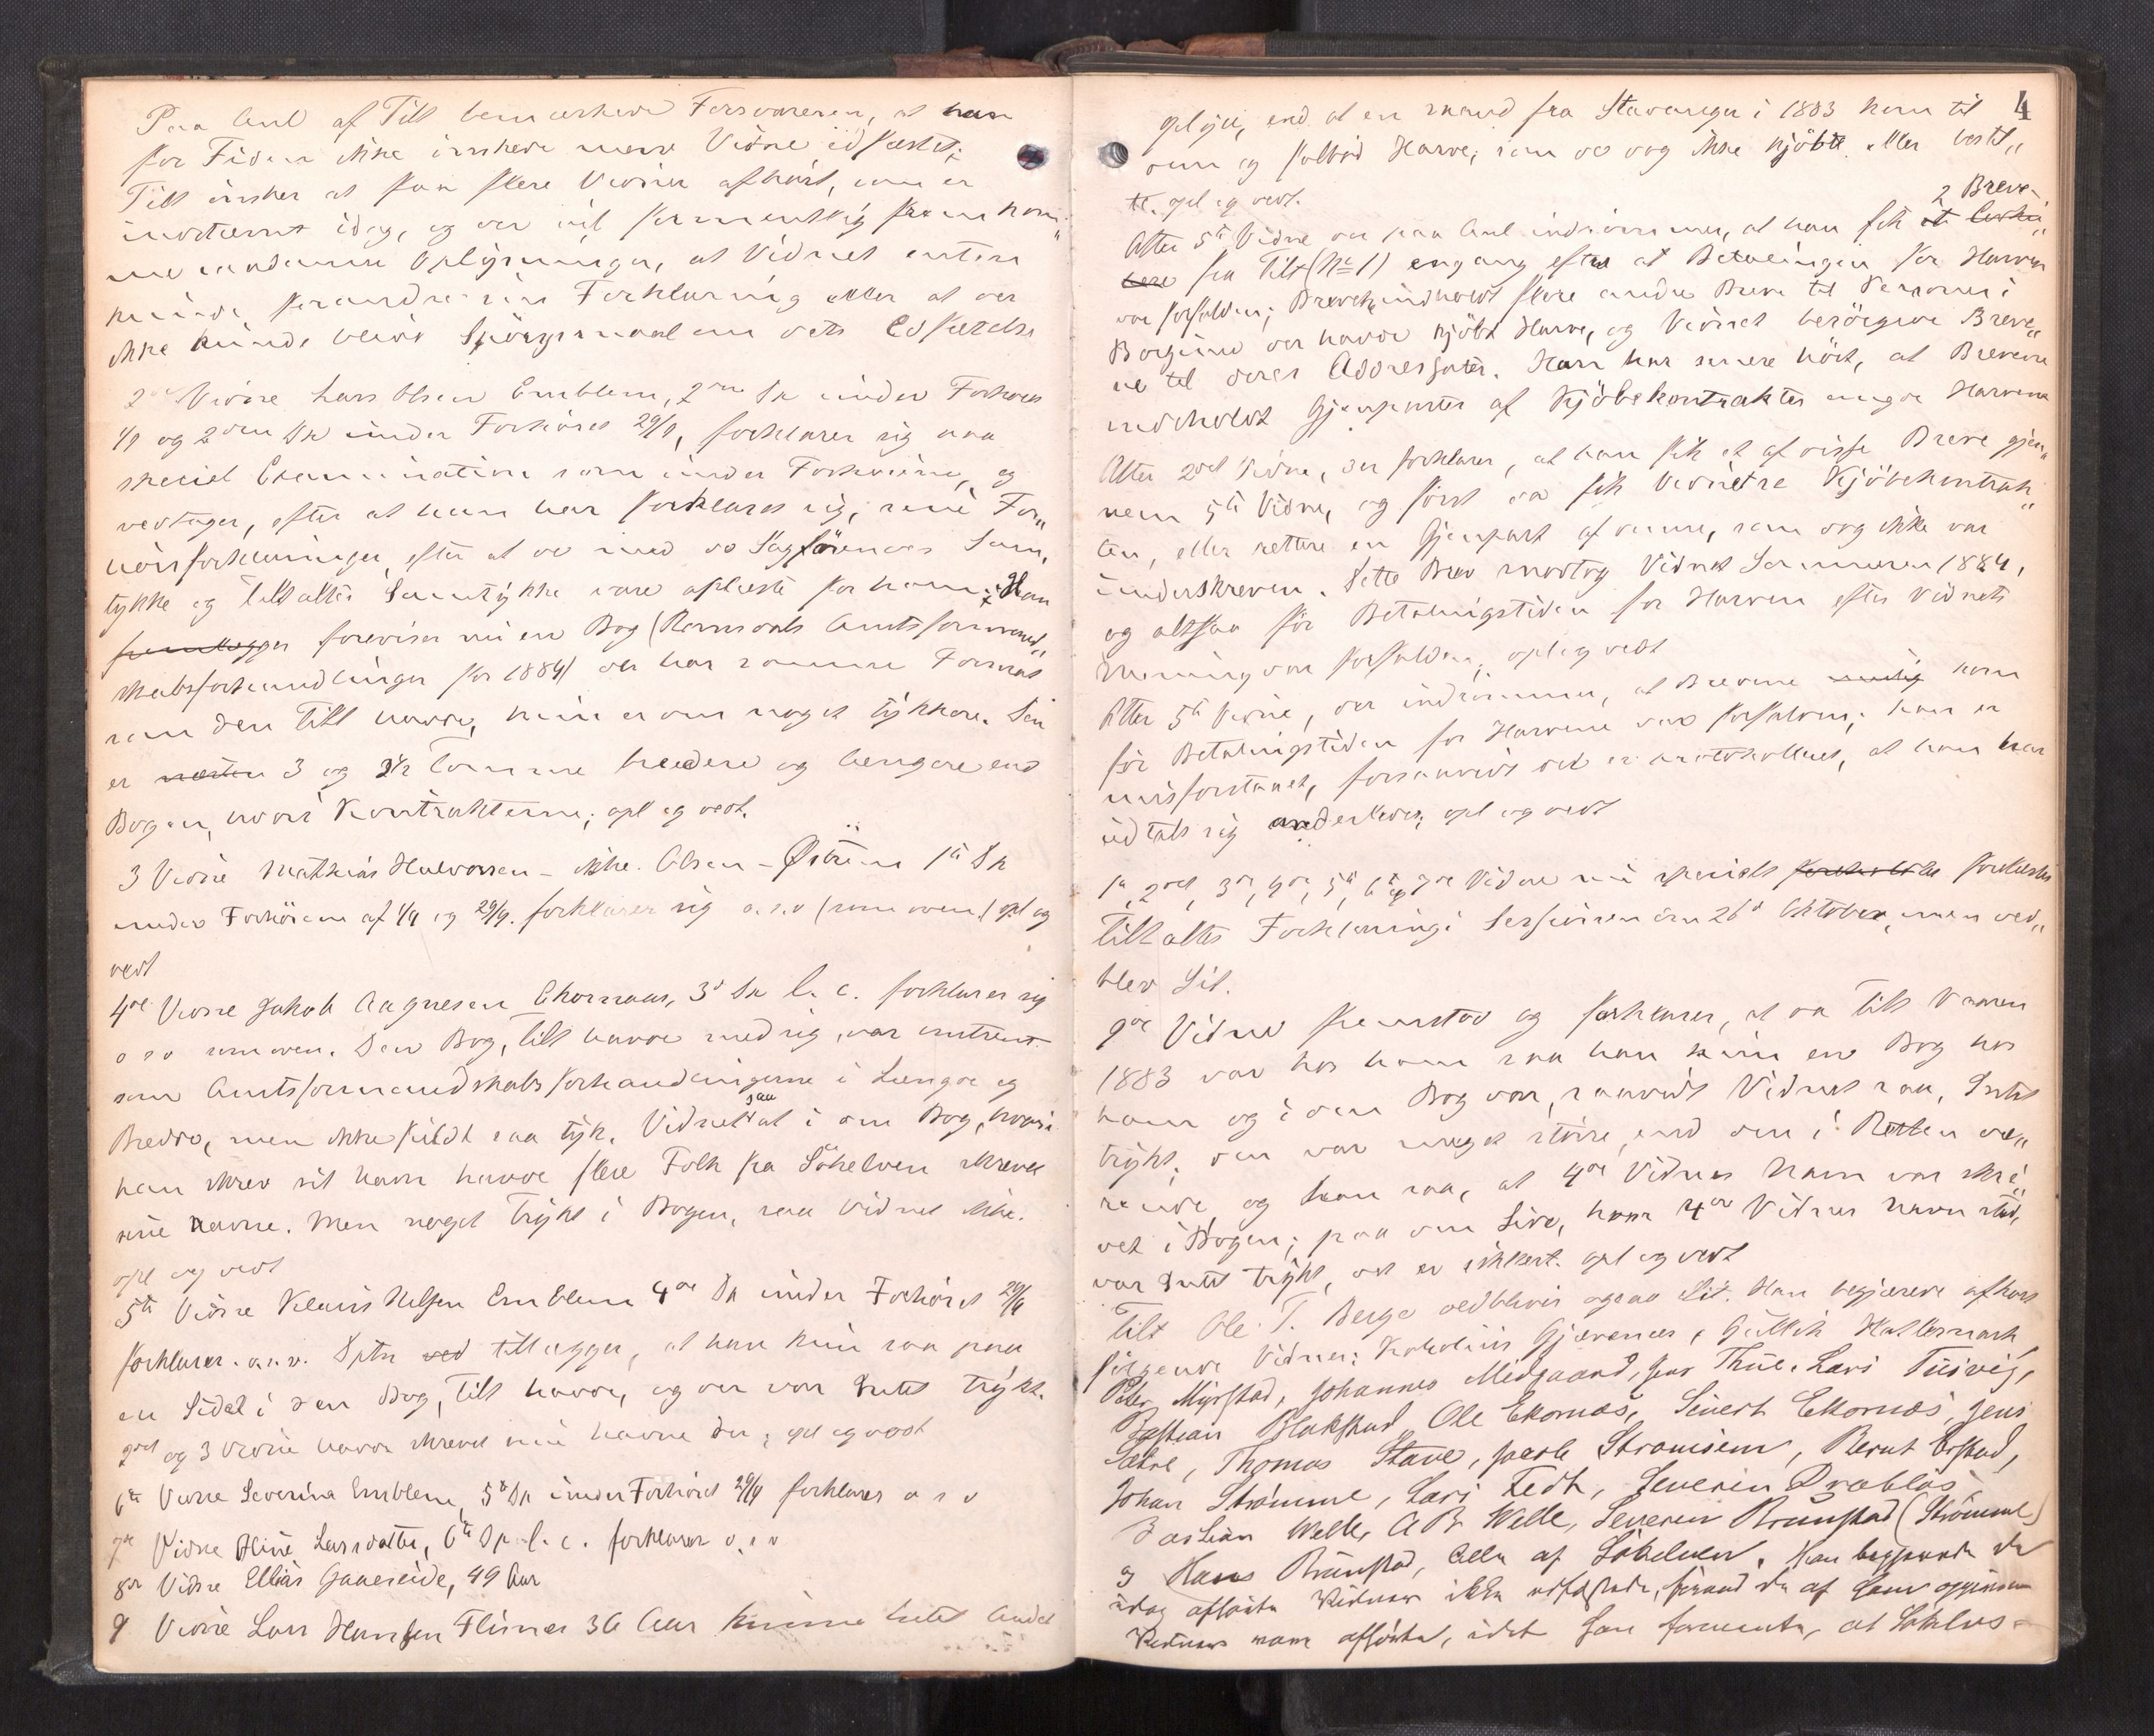 Paa Anl af Tilt bemærkede Forsvareren, at han
for Tiden ikke ønskede mere Vidne edfæstet;
Tilt ønsker at faa flere Vidner afhørt, som er
indstævnt idag, og der vil formentlig fremkom„
me saadanne Oplysninger, at Vidnet enten
kunde forandre sin Forklaring eller at der
ikke kunde blive Spørgsmaal om dets Edfæstelse
2det Vidne Lars Olsen Emblem, 2den Dp under Forhøret
1/9 og 2den Dp under Forhøret 29/9, forklarer sig paa
speciel Examination som under Forhørene, og
vedtager, efter at han har forklaret sig, sine For„
hørsforklaringer, efter at de med de Sagførendes Sam„
tykke og Tiltaltes Samtykke vare oplæste for ham; Han
fremlægger foreviser nu en Bog (Romsdals Amtsformand„
skabsforhandlinger for 1884) der har samme Format
som den Tilt havde, kun er den noget tykkere. Den
er næsten 3 og 2½ Tomme bredere og længere end
Bogen, hvori Kontrakterne; opl og vedt.
3 Vidne Mathias Halvorsen – ikke Olsen – Østrem 1ste Dp
under Forhørene af 1/9 og 29/9. forklarer sig o.s.v (som oven) opl og
vedt
4de Vidne Jakob Aagnesen Ekornaas, 3die Dp l. c. forklarer sig
o s v som oven. Den Bog, Tilt havde med sig, var omtrent
som Amtsformandskabsforhandlingerne i Længde og
Bredde, men ikke fuldt saa tyk. Vidnet saa at i den Bog, hvori
han skrev sit Navn havde flere Folk fra Søkelven skrevet
sine Navne. Men noget Trykt i Bogen, saa Vidnet ikke.
opl og vedt
5te Vidne Klaus Nilsen Emblem 4de Dp under Forhøret 29/9
forklarer o.s.v. Dptn ved tillægger, at han kun saa paa
en Sidel i den Bog, Tilt havde, og der var Intet trykt.
2det og 3 Vidne havde skrevet sine Navne der; opl og vedt
6te Vidne Severina Emblem, 5te Dp under Forhøret 29/9 forklarer o s v
7de Vidne Oline Larsdatter, 6te Dp l. c. forklarer o. s v
8de Vidne Ellias Gaaseide, 49 Aar
9 Vidne Lars Hansen Flisnes 36 Aar kunne Intet Andet
4
oplyse, end at en Mand fra Stavanger i 1883 kom til
dem og falbød Harve, som de dog ikke kjöbte eller bestil„
te. opl og vedt.
2 Breve
Atter 5te Vidne der paa Anl indrømmer, at han fik et
fra Tilt (No 1) engang efter at Betalingen for Harven
var forfalden; Brevet indholdt flere andre Breve til Personer i
Borgund der havde kjöbt Harve, og Vidnet besörgede Breve„
ne til deres Addressater. Han har senere hört, at Brevene
indeholdt Gjenparter af Kjöbekontrakter angde Harvene
Atter 2det Vidne, der forklarer, at han fik et af disse Breve gjen„
nem 5te Vidne, og först da fik Vidnet se Kjöbekontrak„
ten, eller rettere en Gjenpart af denne, som dog ikke var
underskreven. Dette Brev modtog Vidnet Sommeren 1884,
og altsaa för Betalingstiden for Harven efter Vidnets
Mening var forfalden, opl og vedt
Atter 5te Vidne, der indrömmer, at Brevene kom
för Betalingstiden for Harvene var forfalden; han er
misforstaaet, forsaavidt det er protokolleret, at han har
udtalt sig anderledes; opl og vedt
1ste, 2det, 3die, 4de, 5te, 6te og 7de Vidne nu specielt foreholdtes forelæstes
Tiltaltes Forklaring i Sessionen den 26de Oktober, men ved„
blev Sit.
9de Vidne fremstod og forklarer, at da Tilt Vaaren
1883 var hos ham saa han kun en Bog hos
ham og i den Bog var, saavidt Vidnet saa, Intet
trykt; den var meget större end den i Retten væ„
rende og han saa, at 4de Vidnes Navn var skre„
vet i Bogen; paa den Side, hvor 4de Vidnes Navn stod,
var Intet trykt, det er sikkert. opl og vedt
Tilt Ole T. Berge vedblivis ogsaa Sit. Han begjærede afhørt
følgende Vidner: Karolius Gjævenes, Gullik Hatlemark,
Peder Myrstad, Johannes Midgaard, Jens Thue, Lars Tusvig,
Bastian Blakstad, Ole Ekornæs, Sivert Ekornæs, Jens
Sætre, Thomas Stave, Straumsem, Bernt Erstad,
Johan Strömme, Lars Fedt, Severin Drabløs,
Bastian Welle, A B Welle, Severin Brunstad (Strömme)
og Hans Brunstad, Alle af Söhelven. Han begjærede de
idag afhörte Vidner ikke edfæstede, förend de af ham opgivne
Vidner vare afhörte, idet han formente, at Söhlvs-